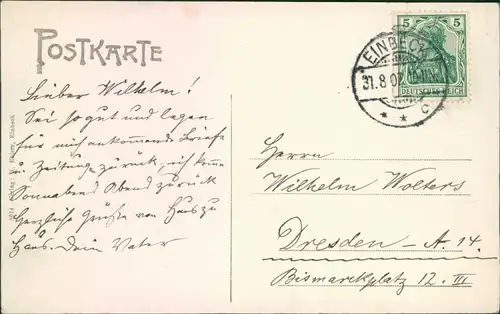 POSTKARTE
Lieber Wilhelm!
Sei so gut und legen
für mich ankommende Briefe
u. Zeitung zurück, ich komme
Sonnabend Abend zurück
Herzliche Grüße von Haus zu
Haus. Dein Vater
Einbeck
EINBECK
31.8.07
* * c
5 5
DEUTSCHES REICH
Herrn
Wilhelm Wolters
Dresden - A. 14.
Bismarckplatz 12. III